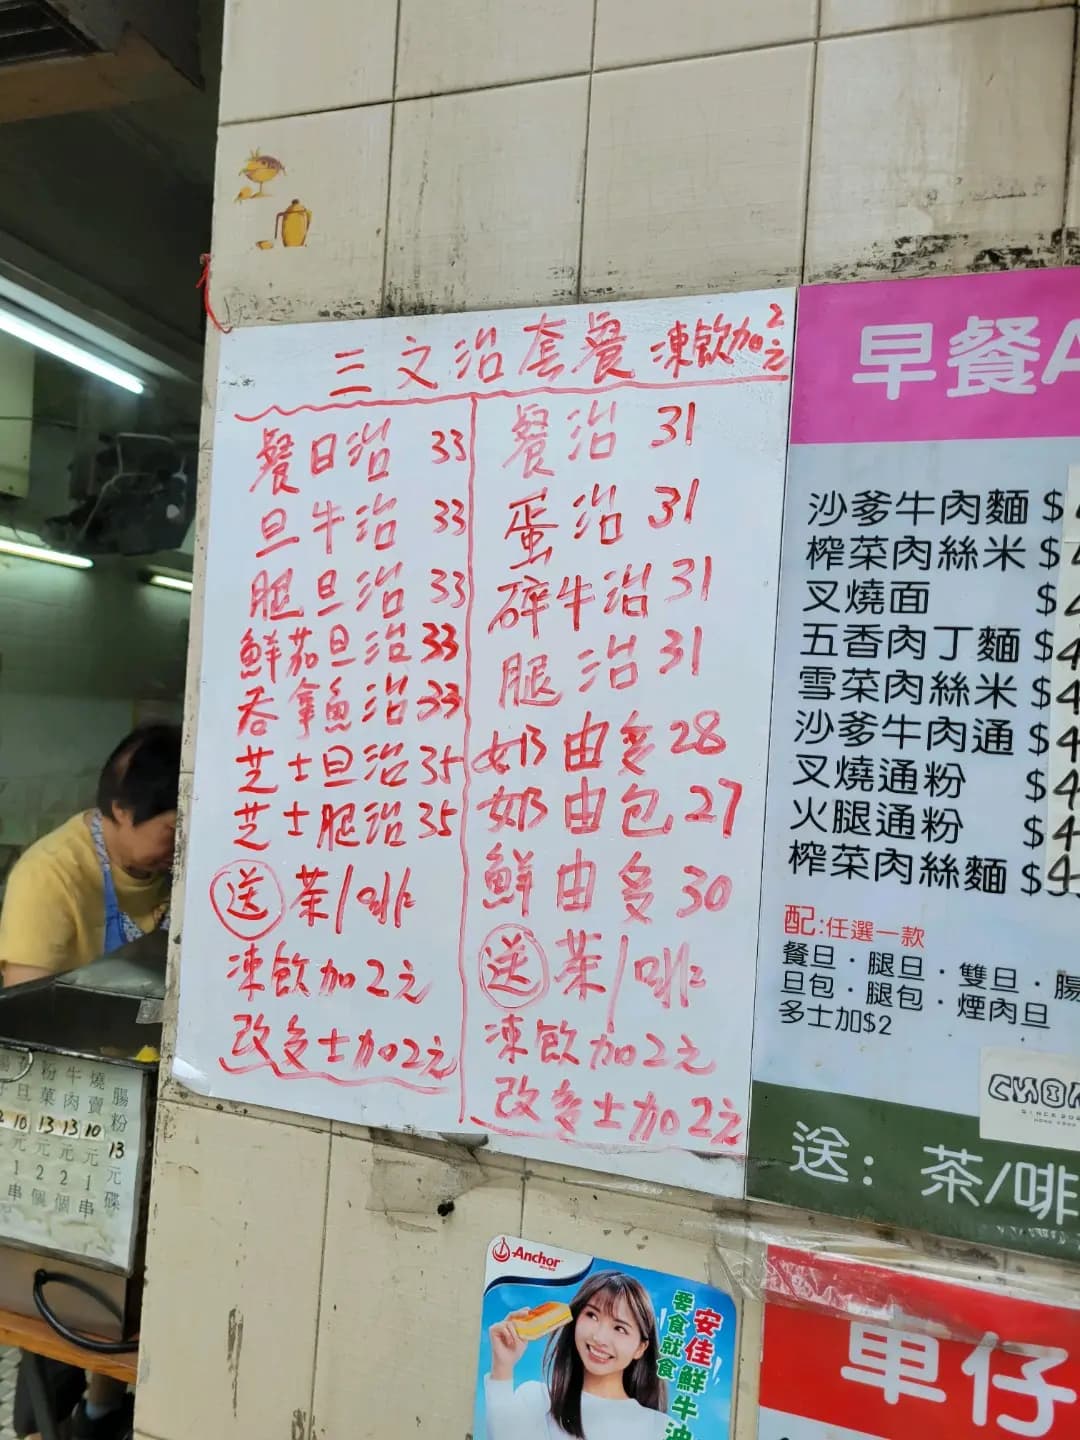 三文治套餐 凍飲加2元
餐旦治 33
旦牛治 33
腿旦治 33
鮮茄旦治 33
吞拿魚治 33
芝士旦治 35
芝士腿治 35
送 茶/啡
凍飲加2元
改多士加2元
餐治 31
蛋治 31
碎牛治 31
腿治 31
奶由多 28
奶由包 27
鮮由多 30
送 茶/啡
凍飲加2元
改多士加2元
早餐A
沙爹牛肉麵 $
榨菜肉絲米 $
叉燒面 $
五香肉丁麵 $4
雪菜肉絲米 $4
沙爹牛肉通 $4
叉燒通粉 $4
火腿通粉 $4
榨菜肉絲麵 $
配:任選一款
餐旦·腿旦·雙旦·腸
旦包·腿包·煙肉旦
多士加$2
送: 茶/啡
車仔
SINCE
Anchor
安佳鮮牛油
要食就食
腸粉 13元碟
燒賣 10元1串
牛肉 13元2個
粉菓 13元2個
旦 10元1串